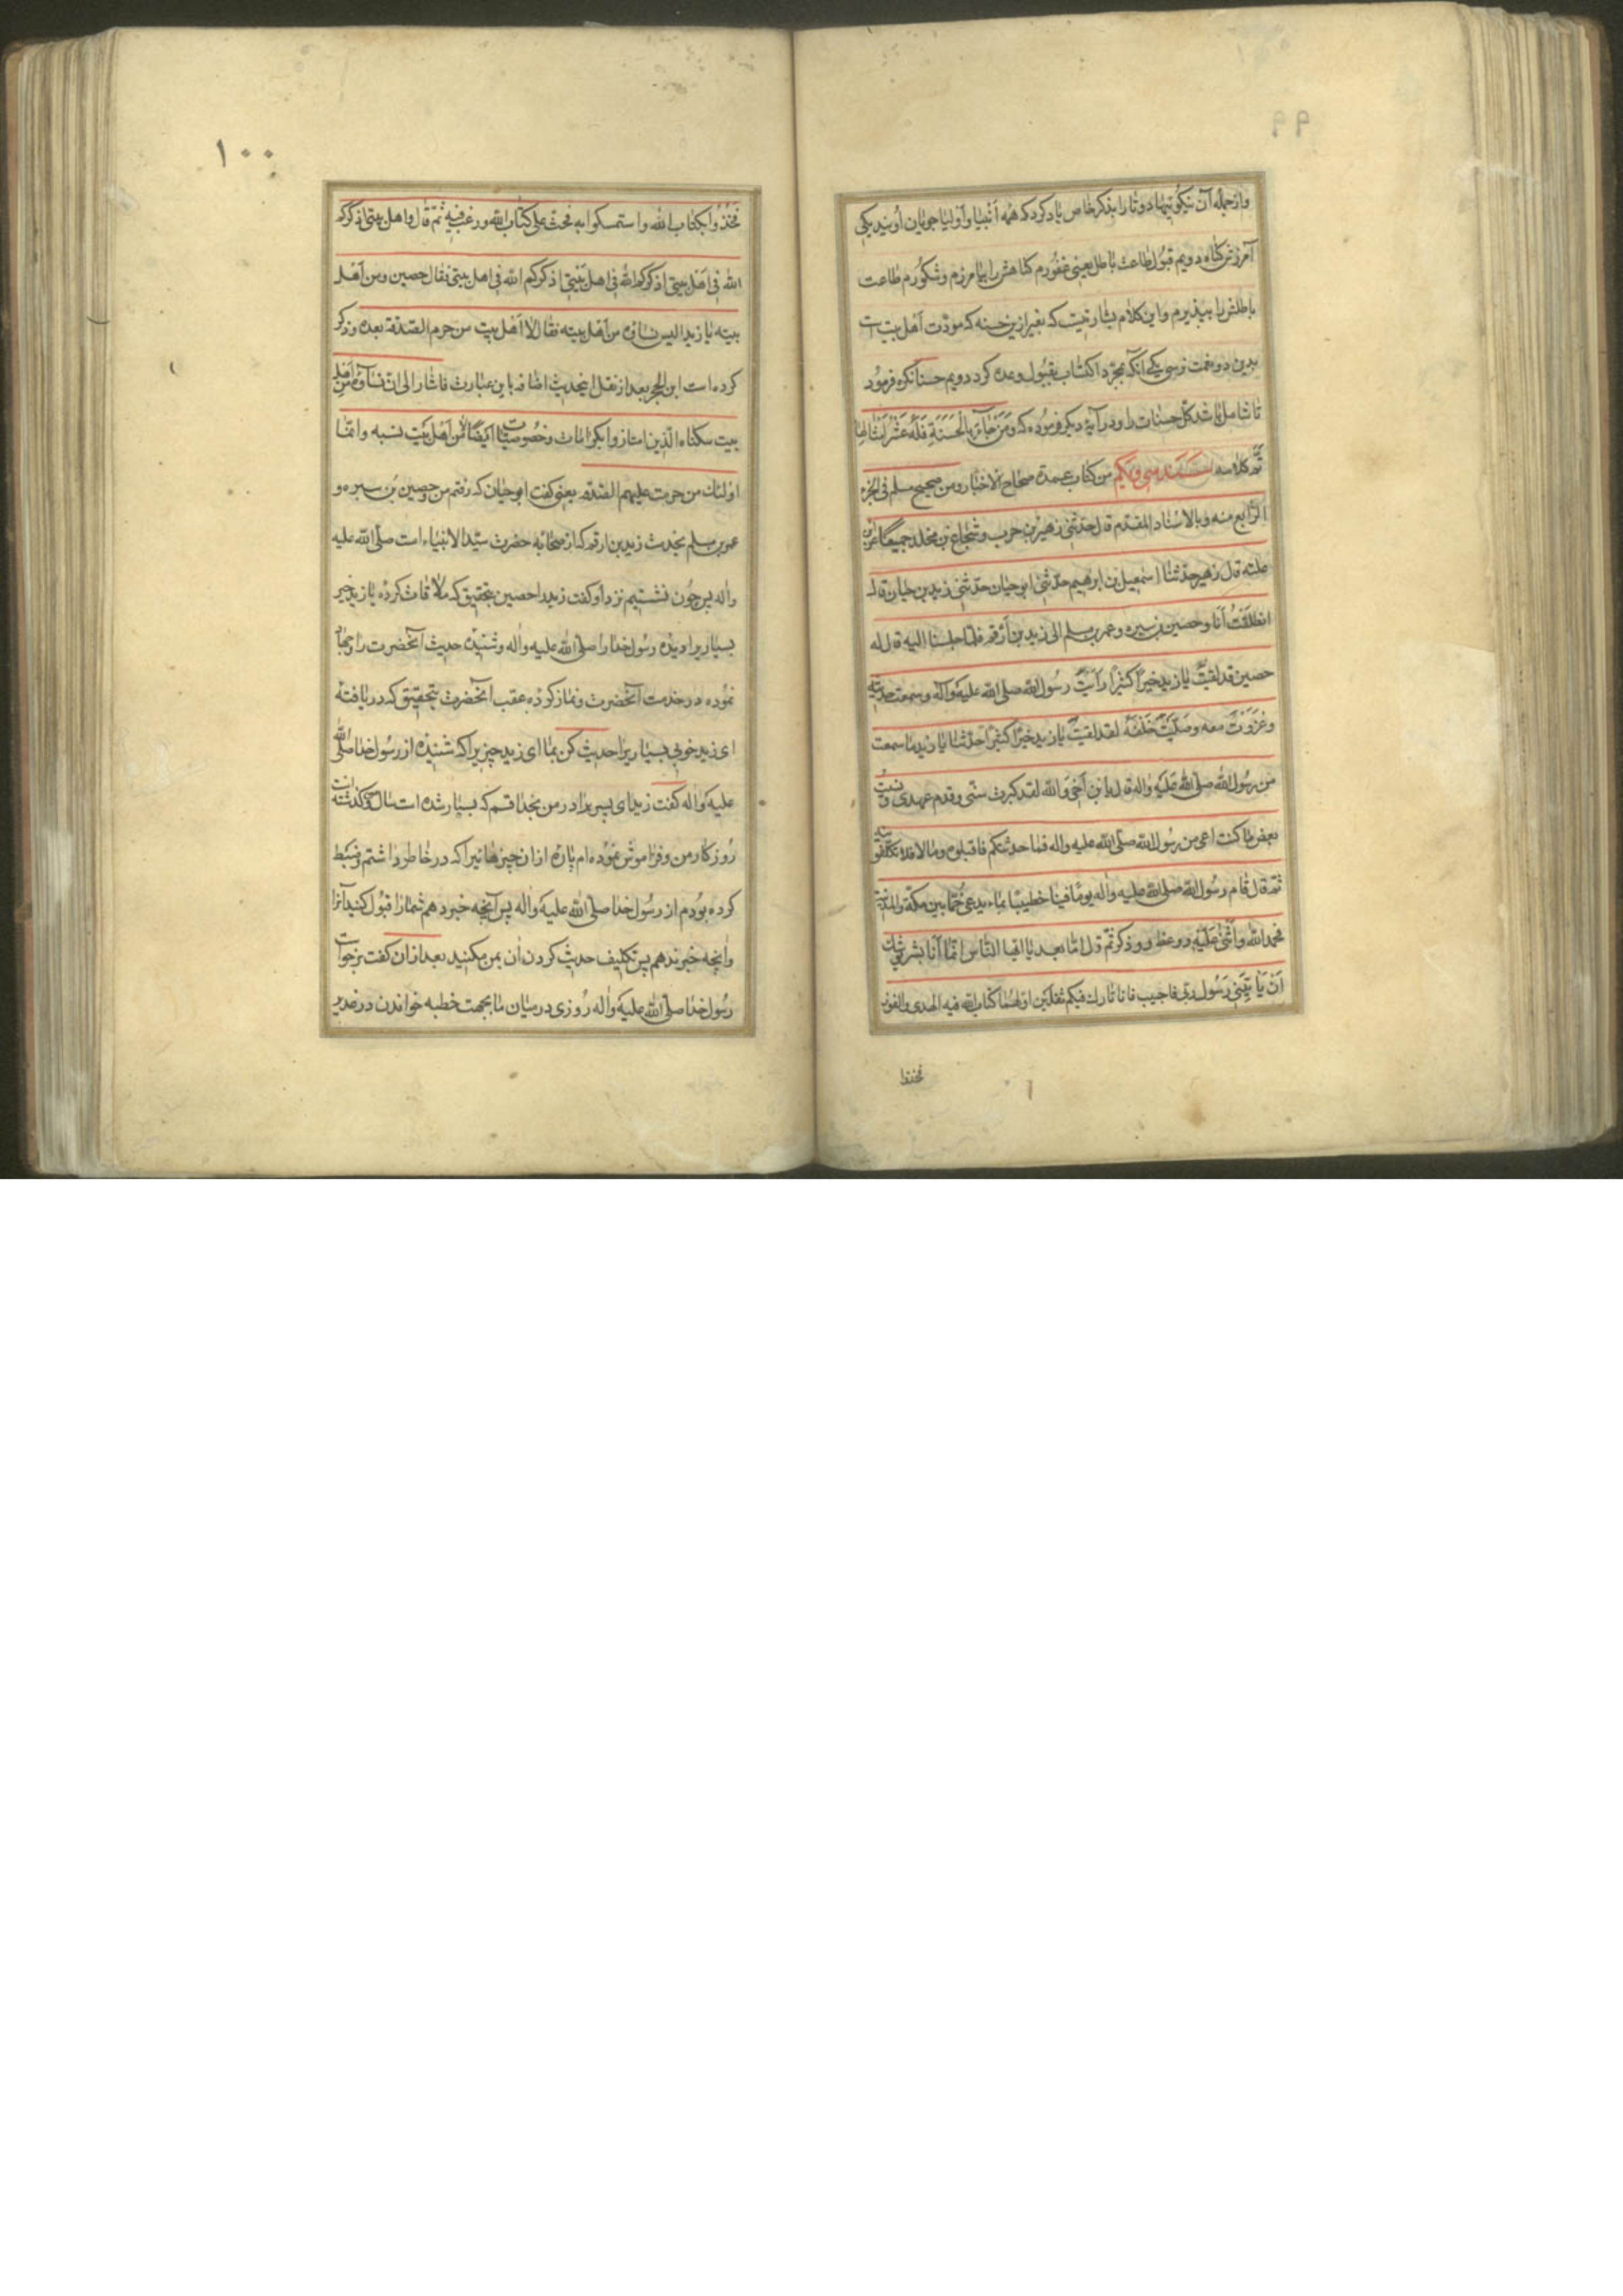 ۹۹
وازجمله آن نیکوئیها دوتا را بذکر خاص یاد کرد که همه انبیا و اولیا جویان اویند یکی
آمرزش کناه دویم قبول طاعت باطل یعنی غفورم کناهش را بیامرزم و شکورم طاعت
باطلش را بپذیرم و این کلام بشارتیست که بغیر ازین حسنه که مودت اهل بیت است
بدین دو نعمت نرسی یکی آنکه بمجرد اکتساب بقبول وعده کرد دویم حسنا نکره فرمود
تا شامل باشد کل حسنات را و در آیهٔ دیکر فرموده که وَمَن جَآءَ بِالْحَسَنَةِ فَلَهُ عَشْرُ اَمْثَالِهَا
تم کلامه سند سی ویکم من کتاب عمدة صحاح الاخبار ومن صحیح مسلم فی الجزء
الرابع منه وبالاسناد المقدم قال حدثنی زهیر بن حرب وشجاع بن مخلد جمیعا عن ابن
علیه قال زهیر حدثنا اسمعیل بن ابرهیم حدثنی ابو حیان حدثنی زید بن حیان قال
انطلقتُ أنا وحصین بن سبره وعمر بن مسلم الی زید بن أرقم فلما جلسنا الیه قال له
حصین قد لقیت یا زید خیرا کثیرا رأیت رسول الله صلی الله علیه وآله وسمعت حدیثه
وغزوت معه وصلیت خلفه لقد لقیت یا زید خیرا کثیرا حدثنا یا زید ما سمعت
من رسول الله صلی الله علیه واله قال یا بن أخی والله لقد کبرت سنی وقدم عهدی ونسیت
بعض ما کنت اعی من رسول الله صلی الله علیه واله فما حدثتکم فاقبلوه وما لا فلا تکلفونیه
ثم قال قام رسول الله صلی الله علیه واله یوما فینا خطیبا بماء یدعی خما بین مکة والمدینة
فحمد الله واثنی علیه ووعظ وذکر ثم قال اما بعد یا ایها الناس انما أنا بشر یوشک
أن یأتینی رسول ربی فاجیب فانا تارک فیکم ثقلین اولهما کتاب الله فیه الهدی والنور
فخذوا
۱۰۰
فَخُذُوا بکتاب الله واستمسکوا به فحث علی کتاب الله ورغب فیه ثم قال واهل بیتی اذکرکم
الله فی اهل بیتی اذکرکم الله فی اهل بیتی اذکرکم الله فی اهل بیتی فقال حصین ومن أهل
بیته یا زید الیس نساؤه من أهل بیته فقال لا اهل بیته من حرم الصدقة بعده وذکر
کرده است ابن الحجر بعد از نقل اینحدیث اضافه باین عبارت فاشار الی ان نسآؤه من أهل
بیت سکناه الذین امتازوا بکرامات وخصوصیات ایضا لا من أهل بیت نسبه وانما
اولئک من حرمت علیهم الصدقه یعنی کفت ابو حیان که رفتم من وحصین بن سبره و
عمر بن مسلم بخدمت زید بن ارقم که از صحابهٔ حضرت سید الانبیاء است صلی الله علیه
واله پس چون نشستیم نزد او کفت زید را حصین بتحقیق که ملاقات کرده یا زید خیر
بسیاریرا دیده رسول خدا را صلی الله علیه واله وشنیده حدیث آنحضرت را وجهاد
نموده در خدمت آنحضرت ونماز کرده عقب آنحضرت بتحقیق که دریافتهٔ
ای زید خوبی بسیاریرا حدیث کن بما ای زید چیزیرا که شنیدهٔ از رسول خدا صلی الله
علیه واله کفت زید ای پسر برادر من بخدا قسم که بسیار شده است سال من وکذشته است
روزکار من وفراموش نموده ام پارهٔ از ان چیزهائیرا که در خاطر داشتم وضبط
کرده بودم از رسول خدا صلی الله علیه واله پس آنچه خبر دهم شما را قبول کنید آنرا
وانچه خبر ندهم پس تکلیف حدیث کردن ان بمن مکنید بعد از ان کفت برخواست
رسول خدا صلی الله علیه واله روزی در میان ما بجهت خطبه خواندن در غدیر